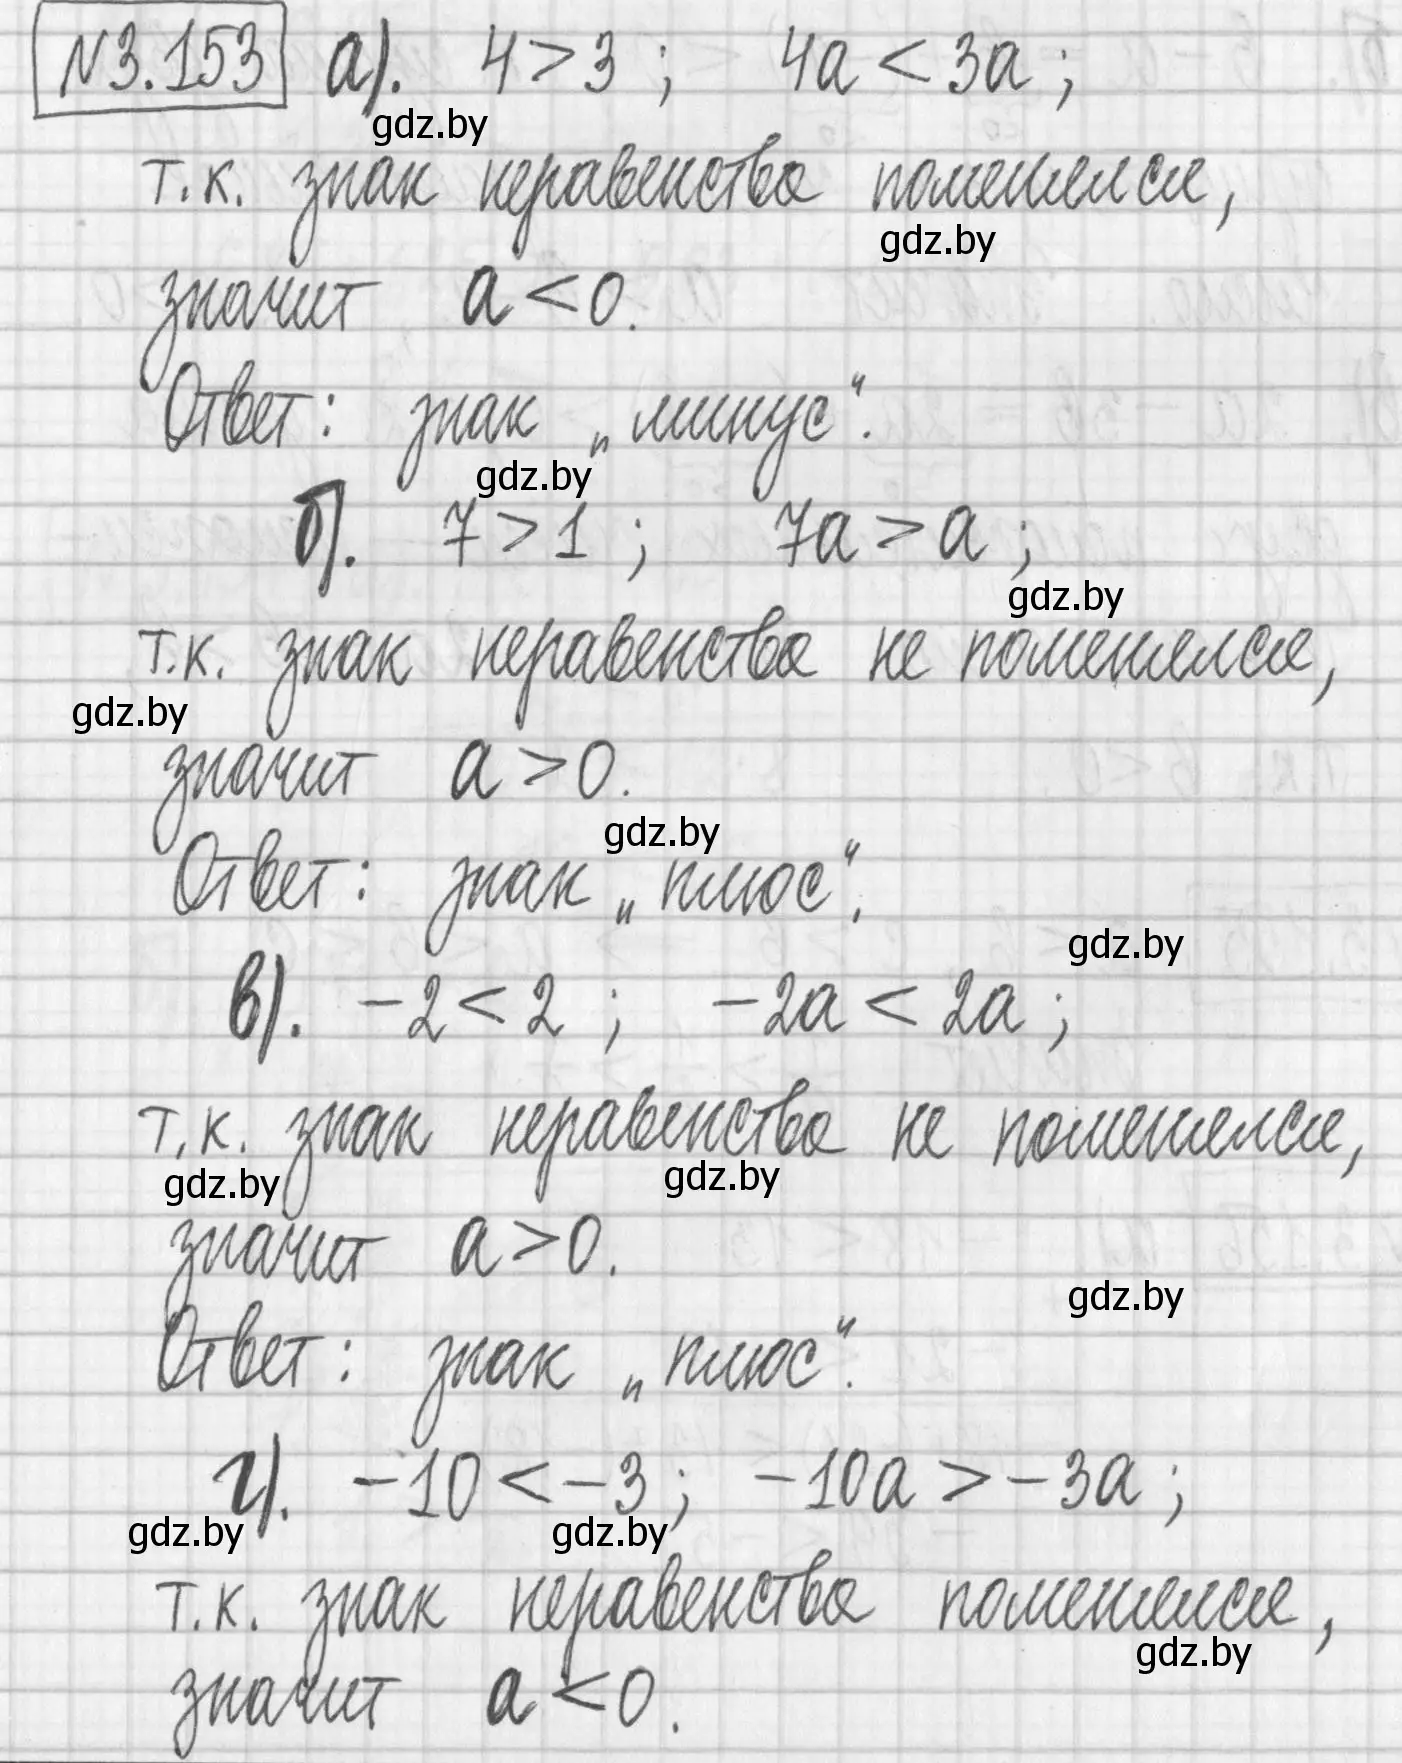 №3.153 а). 4 > 3 ; 4а < 3а ;
gdz.by
т.к. знак неравенства поменялся,
gdz.by
значит а < 0.
Ответ: знак „минус“.
gdz.by
б). 7 > 1 ; 7а > а ;
gdz.by
т.к. знак неравенства не поменялся,
gdz.by
значит а > 0.
gdz.by
Ответ: знак „плюс“.
gdz.by
в). -2 < 2 ; -2а < 2а ;
т.к. знак неравенства не поменялся,
gdz.by gdz.by
значит а > 0.
gdz.by
Ответ: знак „плюс“.
г). -10 < -3 ; -10а > -3а ;
gdz.by gdz.by
т.к. знак неравенства поменялся,
gdz.by
значит а < 0.